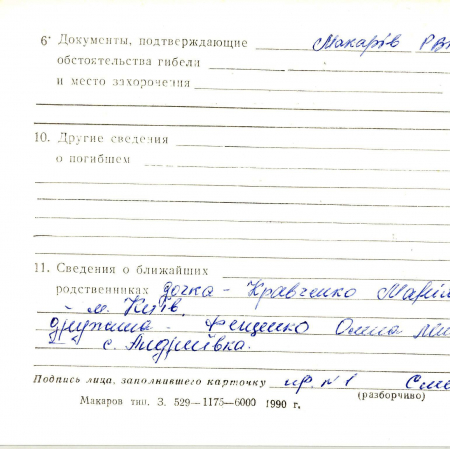 6· Документы, подтверждающие Макарів РВК
обстоятельства гибели
и место захоронения
10. Другие сведения
о погибшем
11. Сведения о ближайших
родственниках дочка - Кравченко Марія
- м. Київ.
дружина - Фещенко Олена
с. Андріївка.
Подпись лица, заполнившего карточку
(разборчиво)
Макаров тип. З. 529—1175—6000 1990 г.